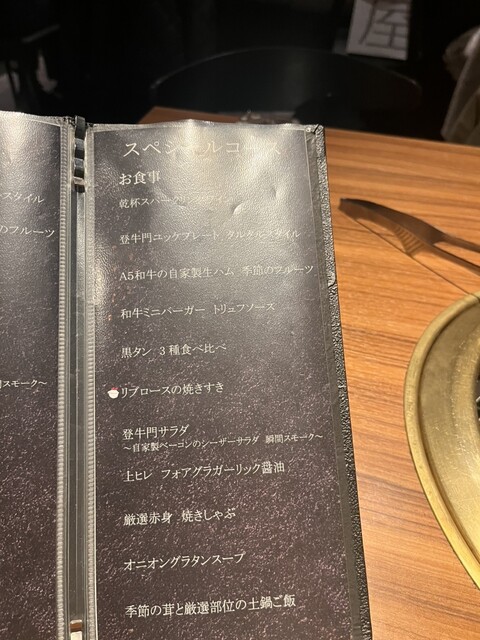 屋
スタイル
のフルーツ
間スモーク～
スペシャルコース
お食事
乾杯スパークリングワイン
登牛門ユッケプレート タルタルスタイル
A5和牛の自家製生ハム 季節のフルーツ
和牛ミニバーガー トリュフソース
黒タン 3種食べ比べ
リブロースの焼きすき
登牛門サラダ
～自家製ベーコンのシーザーサラダ 瞬間スモーク～
上ヒレ フォアグラガーリック醤油
厳選赤身 焼きしゃぶ
オニオングラタンスープ
季節の茸と厳選部位の土鍋ご飯